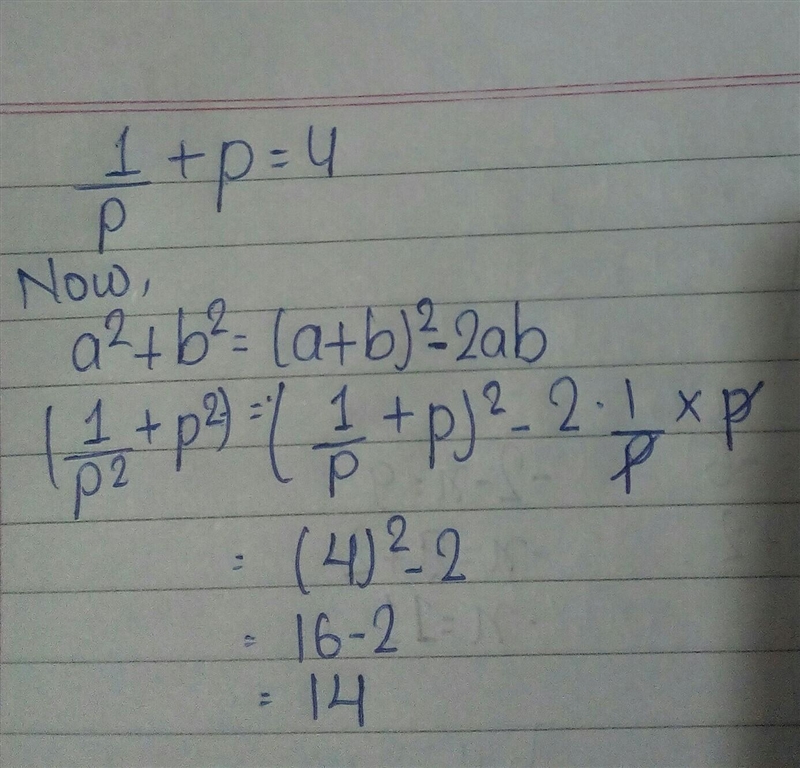 1/p + p = 4
Now,
a² + b² = (a+b)² - 2ab
(1/p² + p²) = (1/p + p)² - 2 · 1/p × p
= (4)² - 2
= 16 - 2
= 14